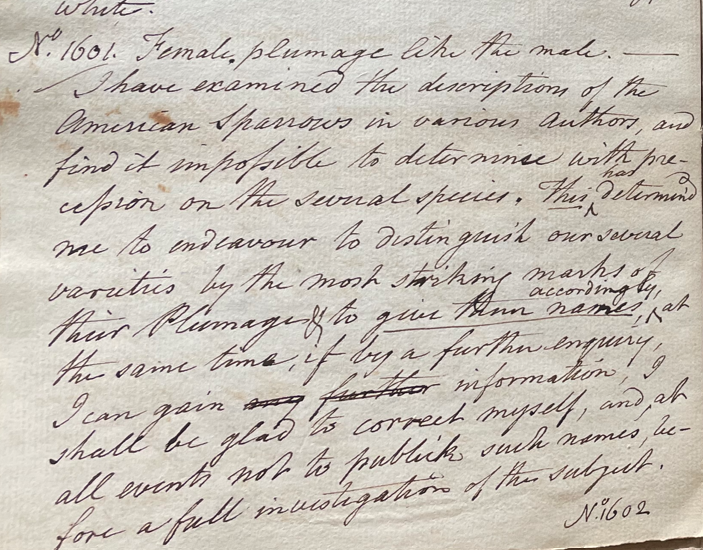 white.
No. 1601. Female plumage like the male. —
I have examined the descriptions of the
American Sparrows in various Authors, and
find it impossible to determine with pre-
cession on the several species. This has determind
me to endeavour to distinguish our several
varieties by the most striking marks of
their Plumage & to give them names accordingly, at
the same time, if by a further enquiry,
I can gain any further information, I
shall be glad to correct myself, and at
all events not to publick such names, be-
fore a full investigation of this subject.
No. 1602